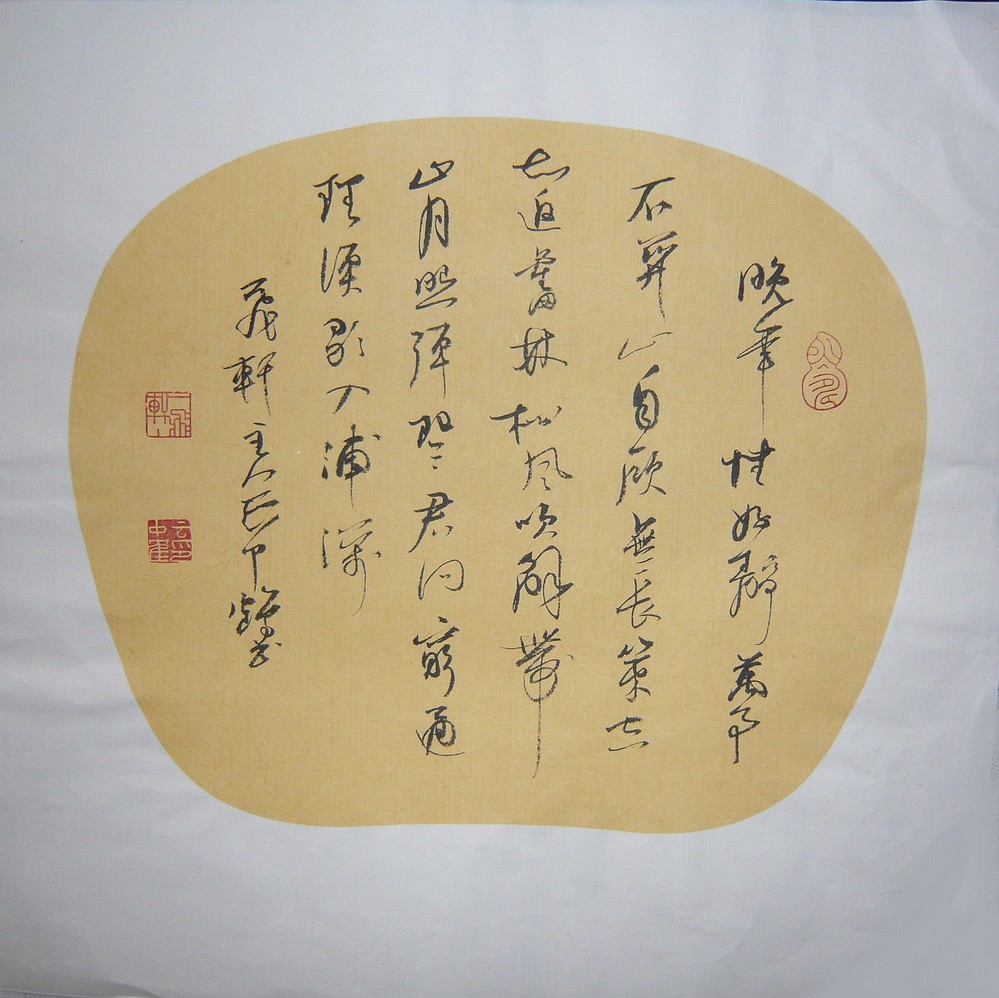 晚年惟好靜萬事
不關心自顧無長策空
知返舊林松風吹解帶
山月照彈琴君問窮通
理漁歌入浦深
飛軒主人